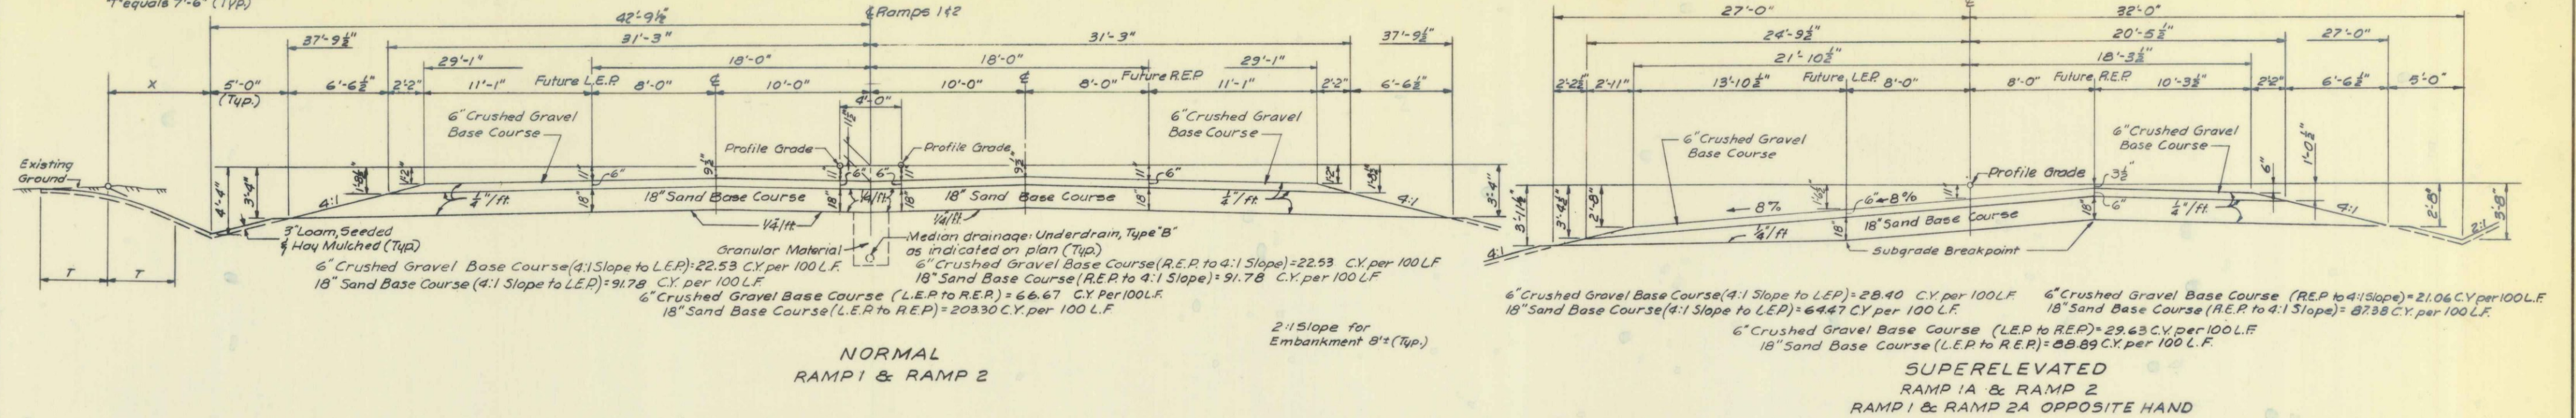 T equals 7'-6" (Typ.)
42'-9½"
℄ Ramps 1&2
37'-9½"
31'-3"
31'-3"
37'-9½"
29'-1"
18'-0"
18'-0"
29'-1"
X
5'-0"
(Typ.)
6'-6½"
2'-2"
11'-1"
Future L.E.P.
8'-0"
℄
10'-0"
10'-0"
℄
8'-0"
Future R.E.P.
11'-1"
2'-2"
6'-6½"
4'-0"
11½"
6" Crushed Gravel
Base Course
6" Crushed Gravel
Base Course
Profile Grade
Profile Grade
Existing
Ground
4'-4"
3'-4"
1'-8½"
1'-2"
11"
6"
9½"
11"
6"
6"
11"
9½"
11"
6"
1'-2"
1'-8½"
3'-4"
4:1
¼"/ft.
18" Sand Base Course
18"
18"
¼"/ft.
18" Sand Base Course
¼"/ft.
4:1
¼"/ft
¼"/ft
3" Loam, Seeded
& Hay Mulched (Typ.)
Granular Material
Median drainage: Underdrain, Type "B"
as indicated on plan (Typ.)
T
T
6" Crushed Gravel Base Course (4:1 Slope to L.E.P.)=22.53 C.Y. per 100 L.F.
18" Sand Base Course (4:1 Slope to L.E.P.)=91.78 C.Y. per 100 L.F.
6" Crushed Gravel Base Course (R.E.P. to 4:1 Slope)=22.53 C.Y. per 100 L.F
18" Sand Base Course (R.E.P. to 4:1 Slope)=91.78 C.Y. per 100 L.F.
6" Crushed Gravel Base Course (L.E.P. to R.E.P.)=66.67 C.Y. Per 100 L.F.
18" Sand Base Course (L.E.P. to R.E.P.)=203.30 C.Y. per 100 L.F.
2:1 Slope for
Embankment 8'± (Typ.)
NORMAL
RAMP 1 & RAMP 2
27'-0"
℄
32'-0"
24'-9½"
20'-5½"
27'-0"
21'-10½"
18'-3½"
2'-2½"
2'-11"
13'-10½"
Future L.E.P.
8'-0"
8'-0"
Future R.E.P.
10'-3½"
2'-2"
6'-6½"
5'-0"
6" Crushed Gravel
Base Course
6" Crushed Gravel
Base Course
Profile Grade
3½"
6"
1'-0½"
3'-11½"
3'-4½"
2'-8"
8%
11"
6"
8%
18" Sand Base Course
18"
6"
¼"/ft.
¼"/ft
4:1
4:1
2'-8"
3'-8"
2:1
Subgrade Breakpoint
6" Crushed Gravel Base Course (4:1 Slope to LEP)=28.40 C.Y. per 100 L.F.
18" Sand Base Course (4:1 Slope to LEP)=64.47 CY per 100 L.F.
6" Crushed Gravel Base Course (R.E.P. to 4:1 Slope)=21.06 C.Y per 100 L.F.
18" Sand Base Course (R.E.P. to 4:1 Slope)=87.38 C.Y. per 100 L.F.
6" Crushed Gravel Base Course (L.E.P. to R.E.P.)=29.63 C.Y. per 100 L.F.
18" Sand Base Course (L.E.P. to R.E.P.)=88.89 C.Y. per 100 L.F.
SUPERELEVATED
RAMP 1A & RAMP 2
RAMP 1 & RAMP 2A OPPOSITE HAND